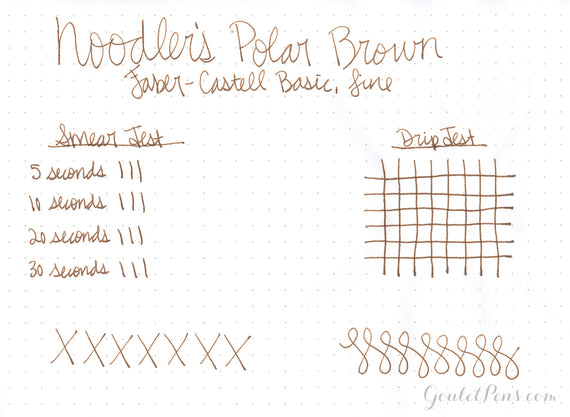 Noodler's Polar Brown
Faber-Castell Basic, fine
Smear Test
5 seconds |||
10 seconds |||
20 seconds |||
30 seconds |||
Drip Test
XXXXXXX
GouletPens.com